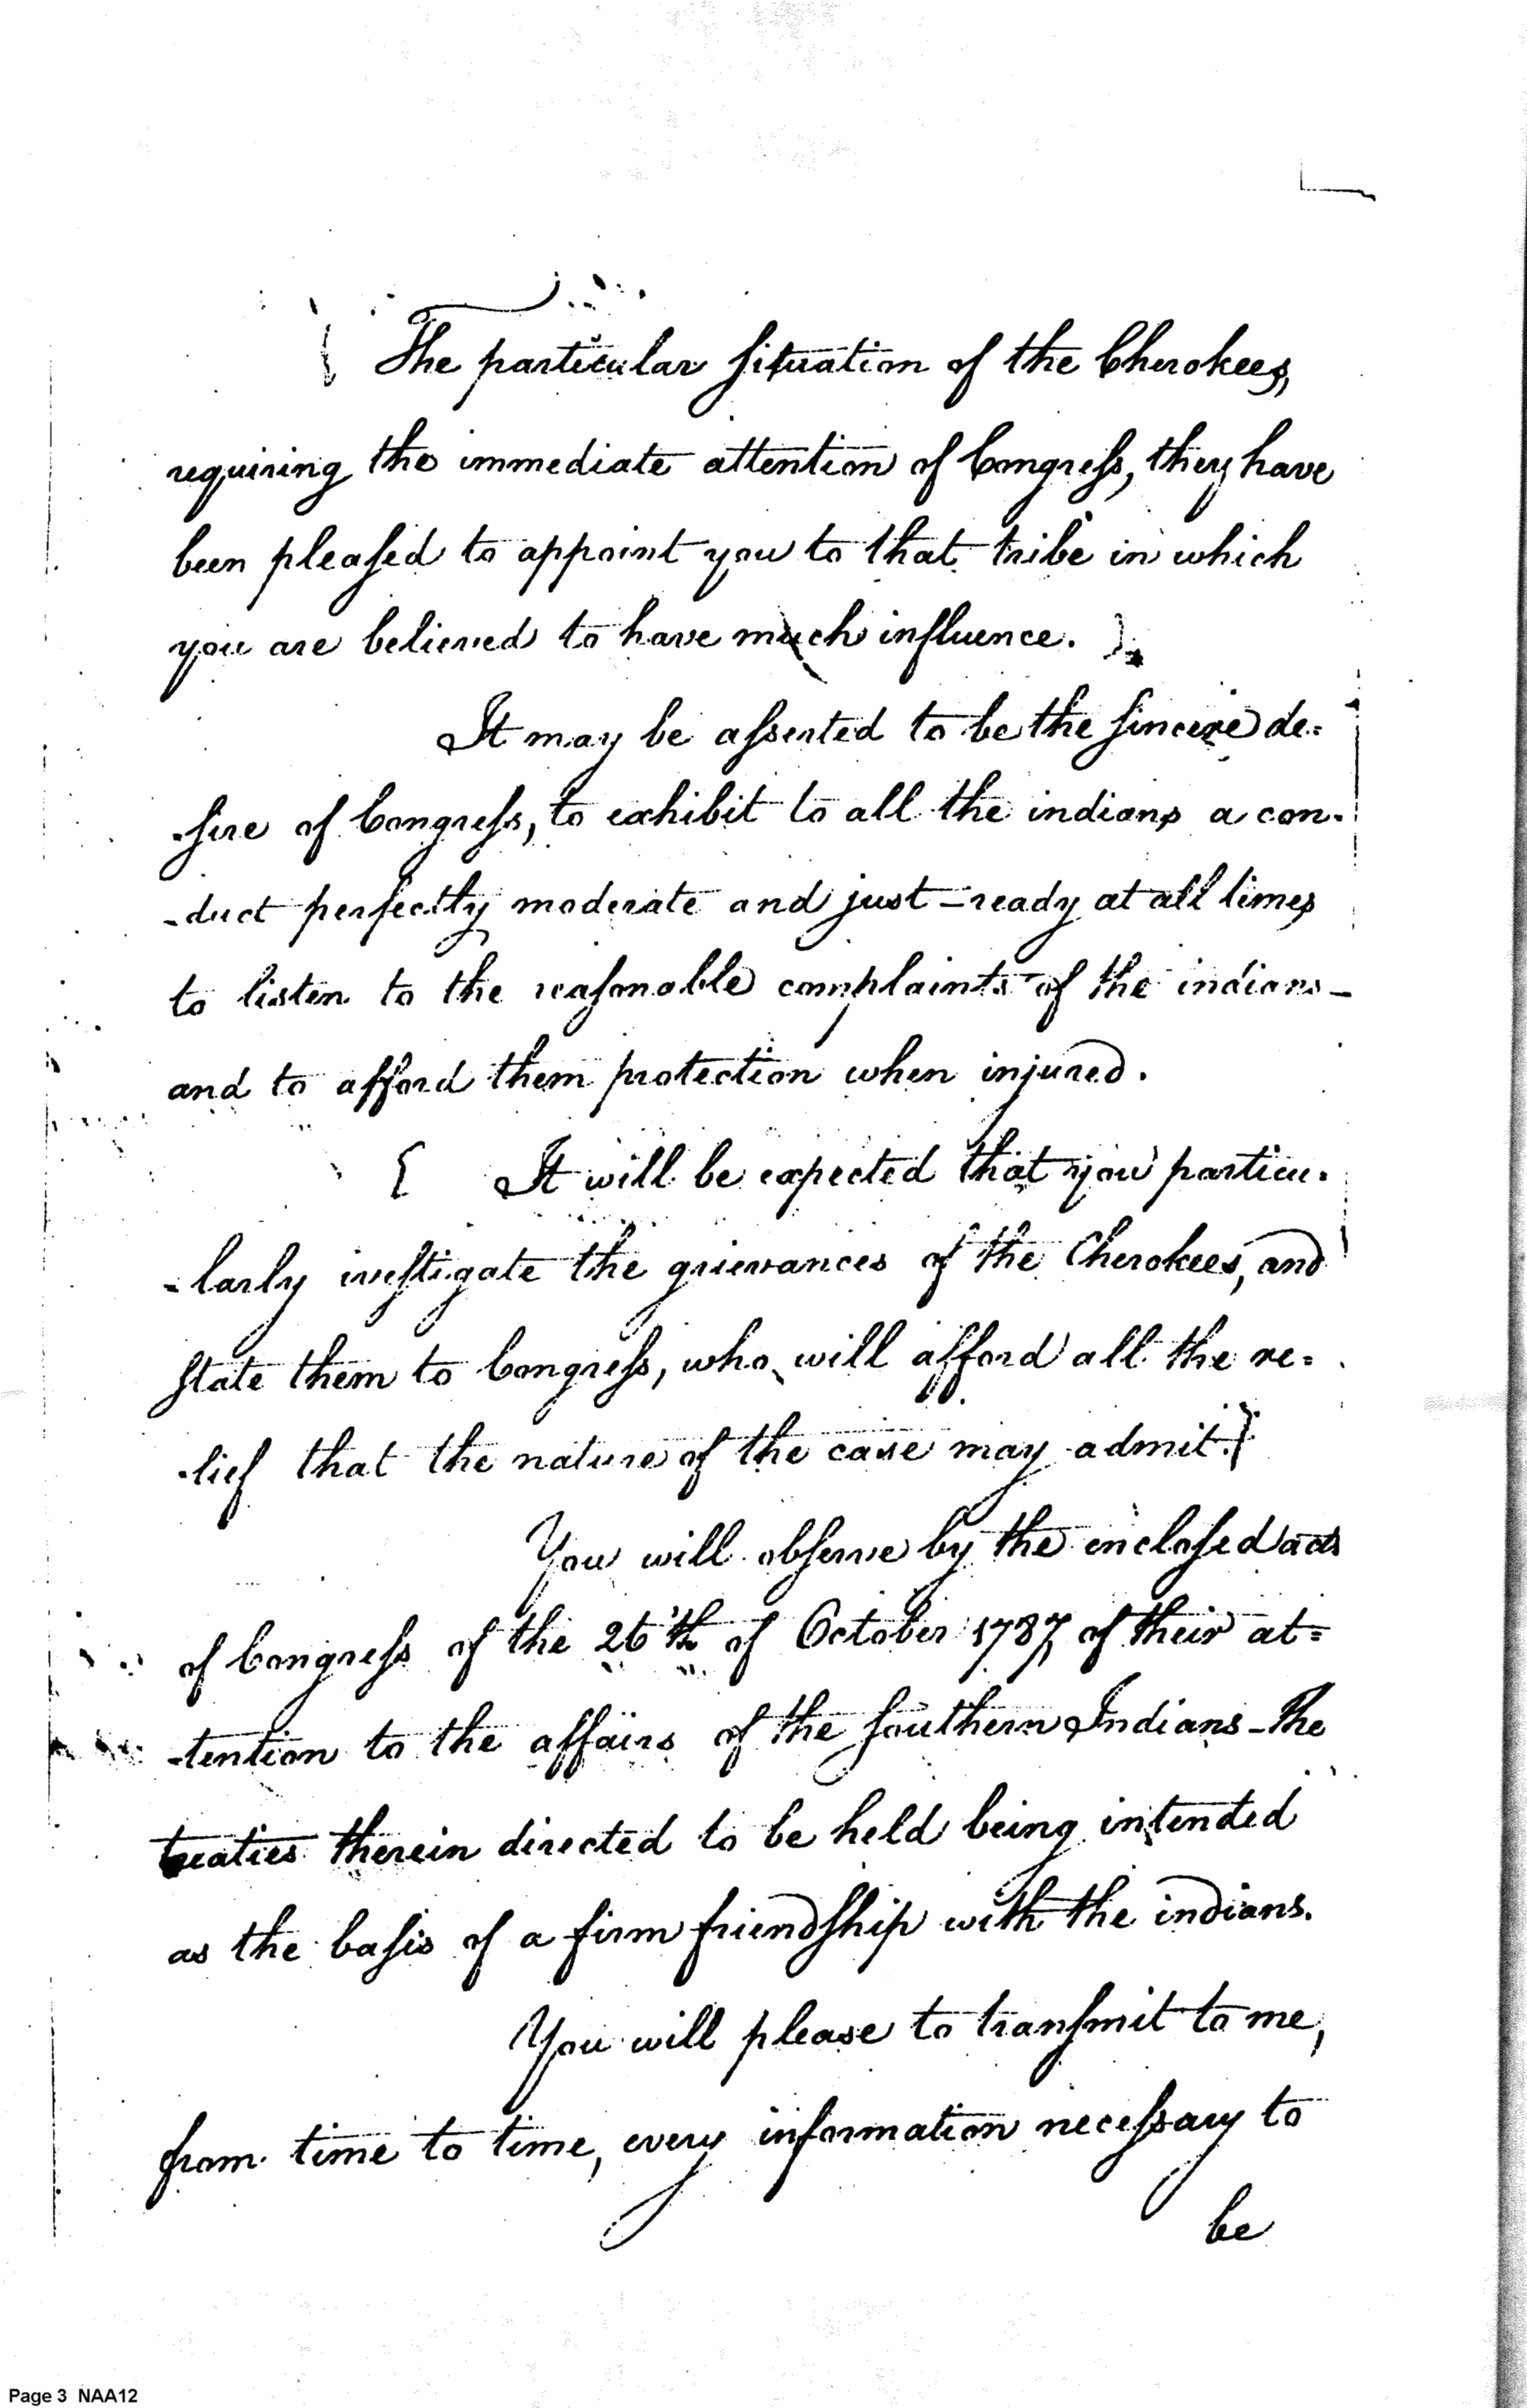 { The particular situation of the Cherokees,
requiring the immediate attention of Congress, they have
been pleased to appoint you to that tribe in which
you are believed to have much influence. }
It may be asserted to be the sincere de=
-sire of Congress, to exhibit to all the indians a con-
-duct perfectly moderate and just - ready at all times
to listen to the reasonable complaints of the indians -
and to afford them protection when injured.
{ It will be expected that you particu-
-larly ivestigate the grievances of the Cherokees, and
state them to Congress, who will afford all the re=
-lief that the nature of the case may admit. }
You will observe by the enclosed acts
of Congress of the 26th of October 1787, of their at=
-tention to the affairs of the southern Indians - The
treaties therein directed to be held being intended
as the basis of a firm friendship with the indians.
You will please to transmit to me,
from time to time, every information necessary to
be
Page 3 NAA12